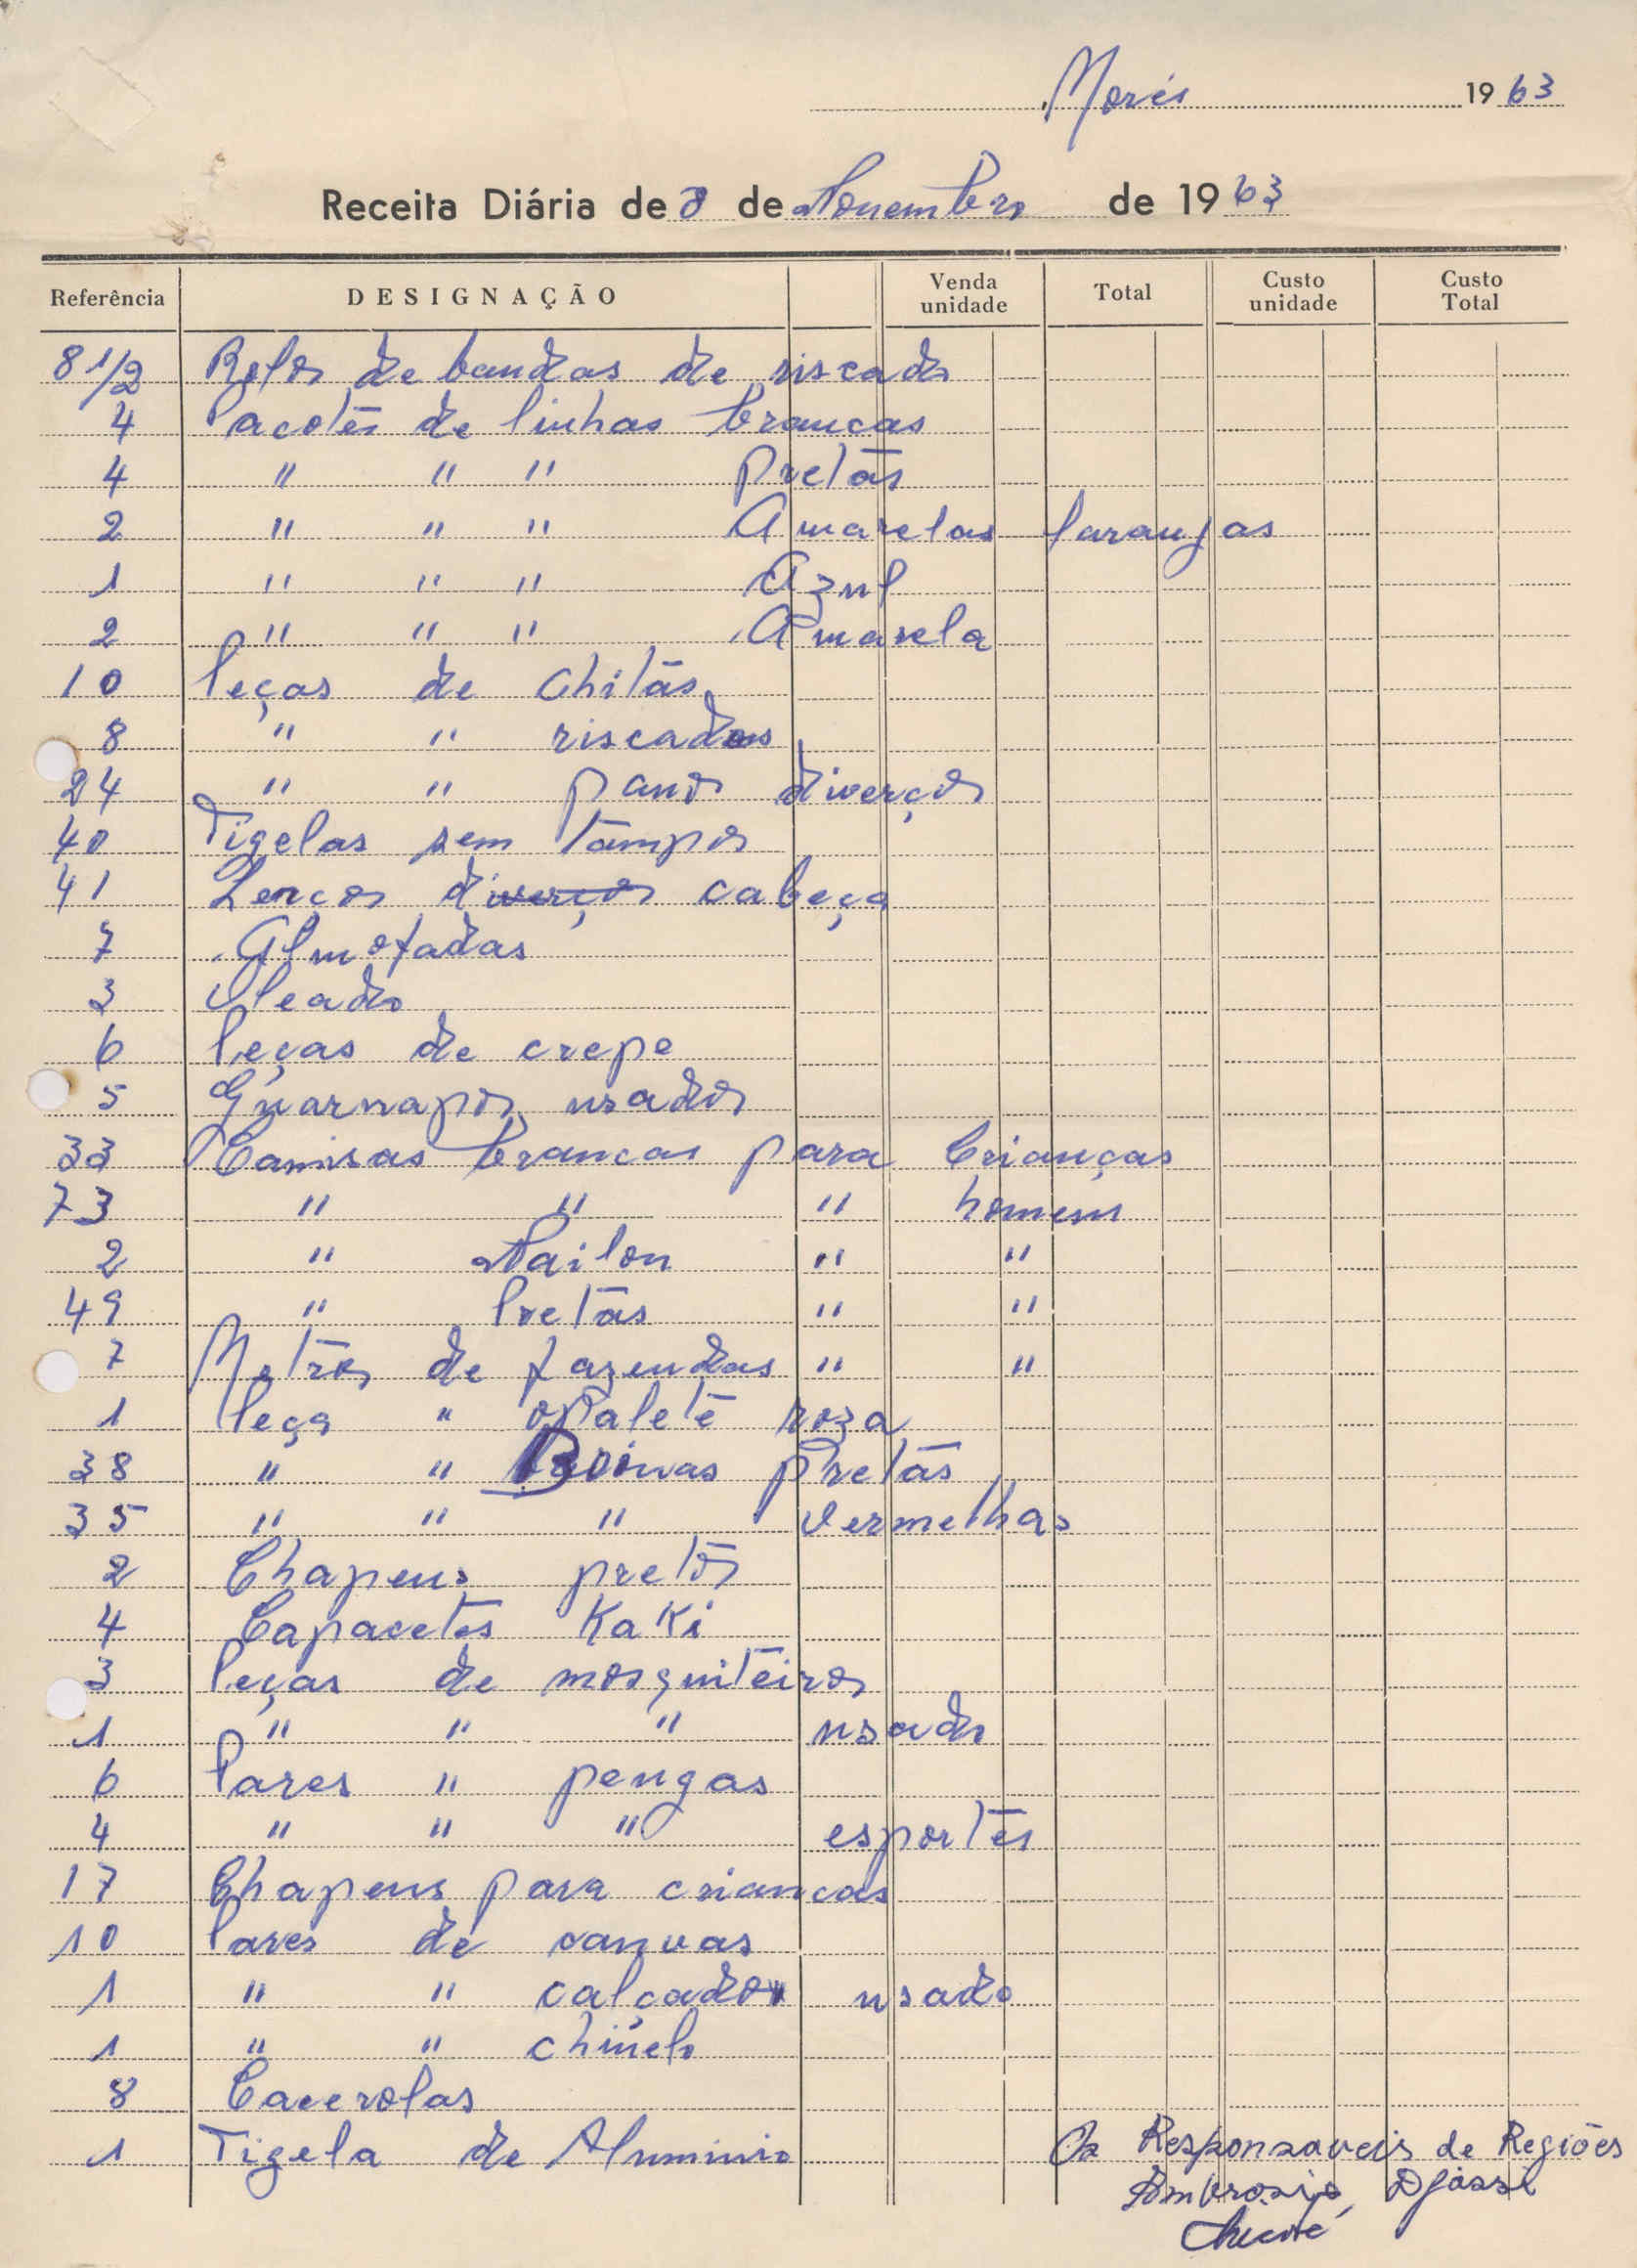 Morés 1963
Receita Diária de 8 de Novembro de 1963
Referência DESIGNAÇÃO Venda unidade Total Custo unidade Custo Total
8 1/2 Rolos de bandas de riscado
4 Pacotes de linhas brancas
4 " " " Pretas
2 " " " Amarelas laranjas
1 " " " Azul
2 " " " Amarela
10 Peças de chitas
8 " " riscados
24 " " panos diverços
40 Tigelas sem tampos
41 Lenços diverços cabeça
7 Almofadas
3 Oleado
6 Peças de crepe
5 Guarnapos usados
33 Camisas brancas para Crianças
73 " " " homens
2 " Nailon " "
49 " Pretas " "
7 Metros de fazendas " "
1 Peça " opalete roza
38 " " Boinas Pretas
35 " " " Vermelhas
2 Chapeus pretos
4 Capacetes KaKi
3 Peças de mosquiteiros
1 " " " usado
6 Pares " peugas
4 " " " esportes
17 Chapeus para criancas
10 Pares de canvas
1 " " calçado usado
1 " " chinelo
8 Cacerolas
1 Tigela de Aluminio
Os Responsaveis de Regiões
Ambrosio Djassi